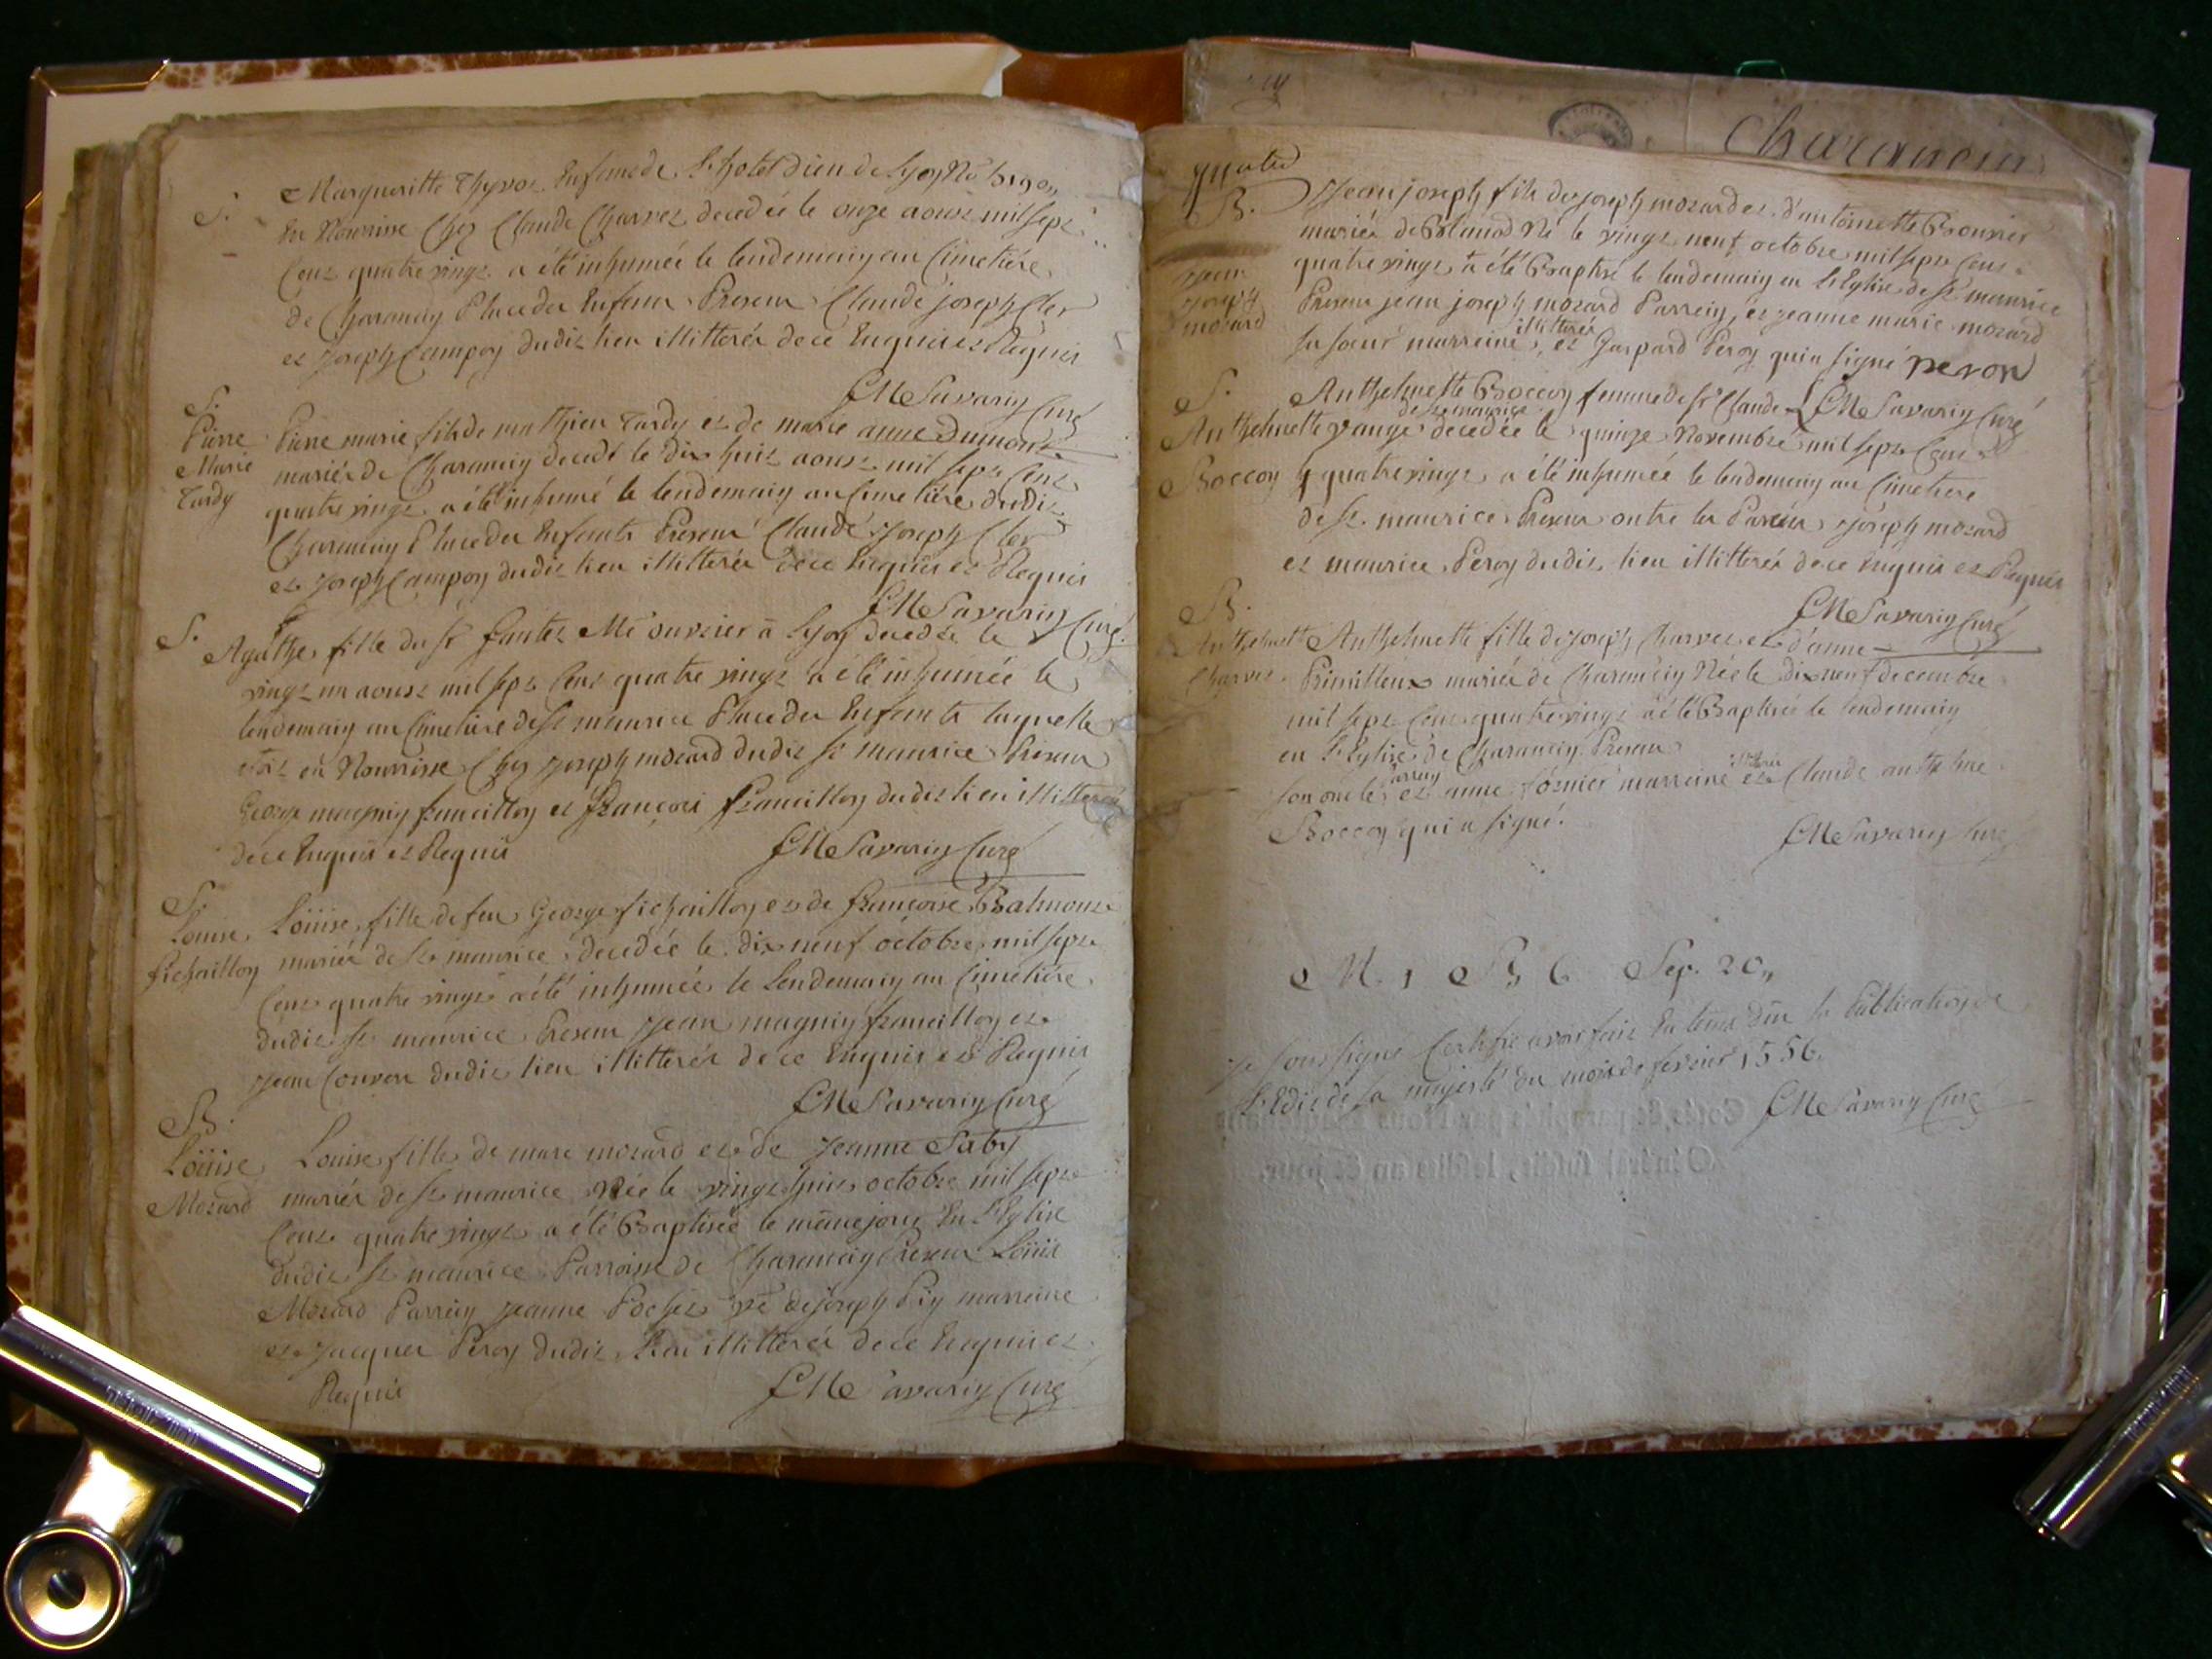 S. Margueritte Thyvos Enfant de L'hotel Dieu de Lyon No
En Nourrisse Chez Claude Charvet decedée le onze aoust mil sept
Cent quatre vingt a été inhumée le lendemain au Cimetiére
de Charancin Place des Enfans Present Claude joseph Cler
et joseph Campon dudit lieu illitterés de ce Enquis et Requis
CM Savarin Curé
S.
Pierre
Marie
Tardy
Pierre marie fils de mathieu Tardy et de marie anne Dumont
mariés de Charancin decedé le dix huit aoust mil sept Cent
quatre vingt a été inhumé le lendemain au Cimetiére dudit
Charancin Place des Enfants Present Claude Joseph Cler
et Joseph Campon dudit lieu illitterés de ce Enquis et Requis
CM Savarin Curé
S. Agathe fille du Sr ouvrier à Lyon decedée le
vingt un aoust mil sept Cent quatre vingt a été inhumée le
lendemain au Cimetiere de St maurice Place des Enfants laquelle
etoit en Nourrisse Chez Joseph mozard dudit St maurice Present
George magnin francillon et françois francillon dudit lieu illitterés
de ce Enquis et Requis CM Savarin Curé
S.
Louise
fichaillon
Loüise fille de feu George fichaillon et de françoise Balmont
mariés de St maurice decedée le dix neuf octobre mil sept
Cent quatre vingt a été inhumée le Lendemain au Cimetiére
dudit St maurice Present Jean magnin francillon et
Jean Convert dudit lieu illitterés de ce Enquis et Requis
CM Savarin Curé
B.
Loüise
Mozard
Louise fille de marc mozard et de Jeanne Saby
mariés de St maurice Née le vingt huit octobre mil sept
Cent quatre vingt a été Baptisée le même jour En L'Eglise
dudit St maurice Parroisse de Charancin Present Loüis
Mozard Parrein Jeanne Pochet ve de joseph Pin marreine
et Jacques Peron dudit lieu illitterés de ce Enquis et
Requis CM Savarin Curé
Charancin
quatre
B.
Jean
Joseph
mozard
Jean joseph fils de Joseph mozard et d'antoinette Brouvier
mariés de Né le vingt neuf octobre mil sept Cent
quatre vingt a été Baptisé le lendemain en L'Eglise de St maurice
Present jean joseph mozard Parrein, et jeanne marie mozard
sa soeur marreine illitterés, et Gaspard Peron qui a signé peron
CM Savarin Curé
S.
Anthelmette
Boccon
Anthelmette Boccon femme de Sr Claude
vauge de St maurice decedée le quinze Novembre mil sept Cent
quatre vingt a été inhumée le lendemain au Cimetiere
de St maurice Present outre les Parens Joseph mozard
et maurice Peron dudit lieu illitterés de ce Enquis et Requis
CM Savarin Curé
B.
Anthelmette
Charvet
Anthelmette fille de Joseph Charvet et d'anne
mariés de Charancin Née le dix neuf decembre
mil sept Cent quatre vingt a été Baptisée le lendemain
en L'Eglise de Charancin Present
son oncle Parrein et anne fornier marreine illitterés et Claude anthelme
Boccon qui a signé.
CM Savarin Curé
M. 1 B 6 Sep. 20,,
Je soussigné Certifie avoir fait En tems dû la Publication de
L'Edit de sa majesté du mois de fevrier 1556.
CM Savarin Curé